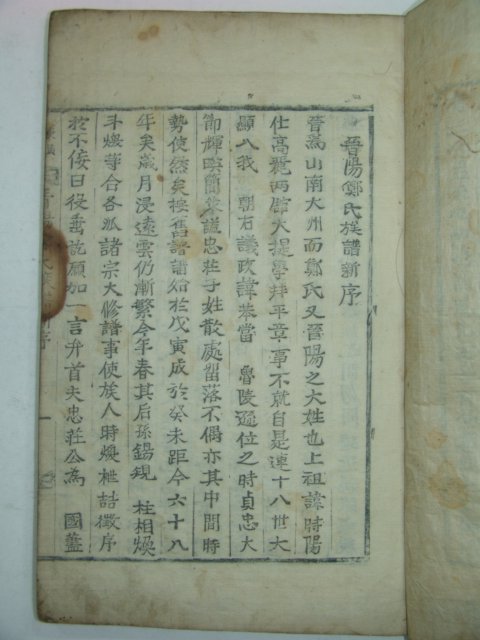 晉陽鄭氏族譜新序
晉爲山南大州而鄭氏又晉陽之大姓也上祖諱時陽
仕高麗再闢大提學拜平章事不就自是連十八世大
顯入我 朝右議政諱苯當 魯陵遜位之時貞忠大
節輝暎簡策謚忠莊子姓散處留落不偶亦其中間時
勢使然矣按舊譜譜始於戊寅成於癸未距今六十八
年矣歲月浸遠雲仍漸繁今年春其后孫錫規 柱相煥
斗煥等合各派諸宗大修譜事使族人時煥 喆徵序
於不佞曰役垂訖願加一言弁首夫忠莊公爲 國藎